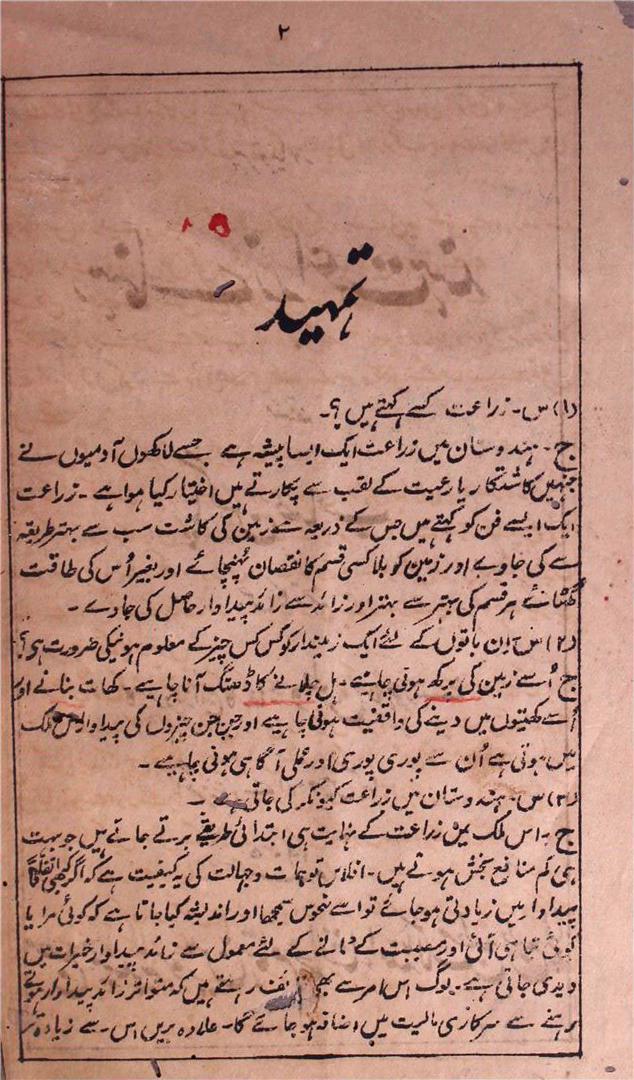 ۲
تمہید
(۱) س۔ زراعت کسے کہتے ہیں؟۔
ج۔ ہندوستان میں زراعت ایک ایسا پیشہ ہے جسے لاکھوں آدمیوں نے
جنہیں کاشتکار یا رعیت کے لقب سے پکارتے ہیں اختیار کیا ہوا ہے۔ زراعت
ایک ایسے فن کو کہتے ہیں جس کے ذریعہ سے زمین کی کاشت سب سے بہتر طریقہ
سے کی جاوے اور زمین کو بلا کسی قسم کا نقصان پہنچائے اور بغیر اُس کی طاقت
گھٹائے ہر قسم کی بہتر سے بہتر اور زائد سے زائد پیداوار حاصل کی جاوے۔
(۲) س۔ اِن باتوں کے لئے ایک زمیندار کو کس کس چیز کے معلوم ہونیکی ضرورت ہی؟
ج اُسے زمین کی پرکھ ہونی چاہیے۔ ہل چلانے کا ڈھنگ آنا چاہیے۔ کھات بنانے اور
اُسے کھیتوں میں دینے کی واقفیت ہونی چاہیے اور جن جن چیزوں کی پیداوار اس ملک
میں ہوتی ہے اُن سے پوری پوری اور عملی آگاہی ہونی چاہیے۔
(۳) س۔ ہندوستان میں زراعت کیونکر کی جاتی ہے۔
ج۔ اس ملک میں زراعت کے نہایت ہی ابتدائی طریقے برتے جاتے ہیں جو بہت
ہی کم منافع بخش ہوتے ہیں۔ افلاس توہمات و جہالت کی یہ کیفیت ہے کہ اگر کبھی اتفاقاً
پیداوار میں زیادتی ہو جائے تو اسے نحوس سمجھا اور اندیشہ کیا جاتا ہے کہ کوئی مرا یا
کوئی تباہی آئی اور مصیبت کے ٹالنے کے لئے معمول سے زائد پیداوار خیرات میں
دیدی جاتی ہے۔ لوگ اس امر سے بھی خائف رہتے ہیں کہ متواتر زائد پیداوار ہوتے
رہنے سے سرکاری مالیت میں اضافہ ہو جائے گا۔ علاوہ بریں اس سے زیادہ تر